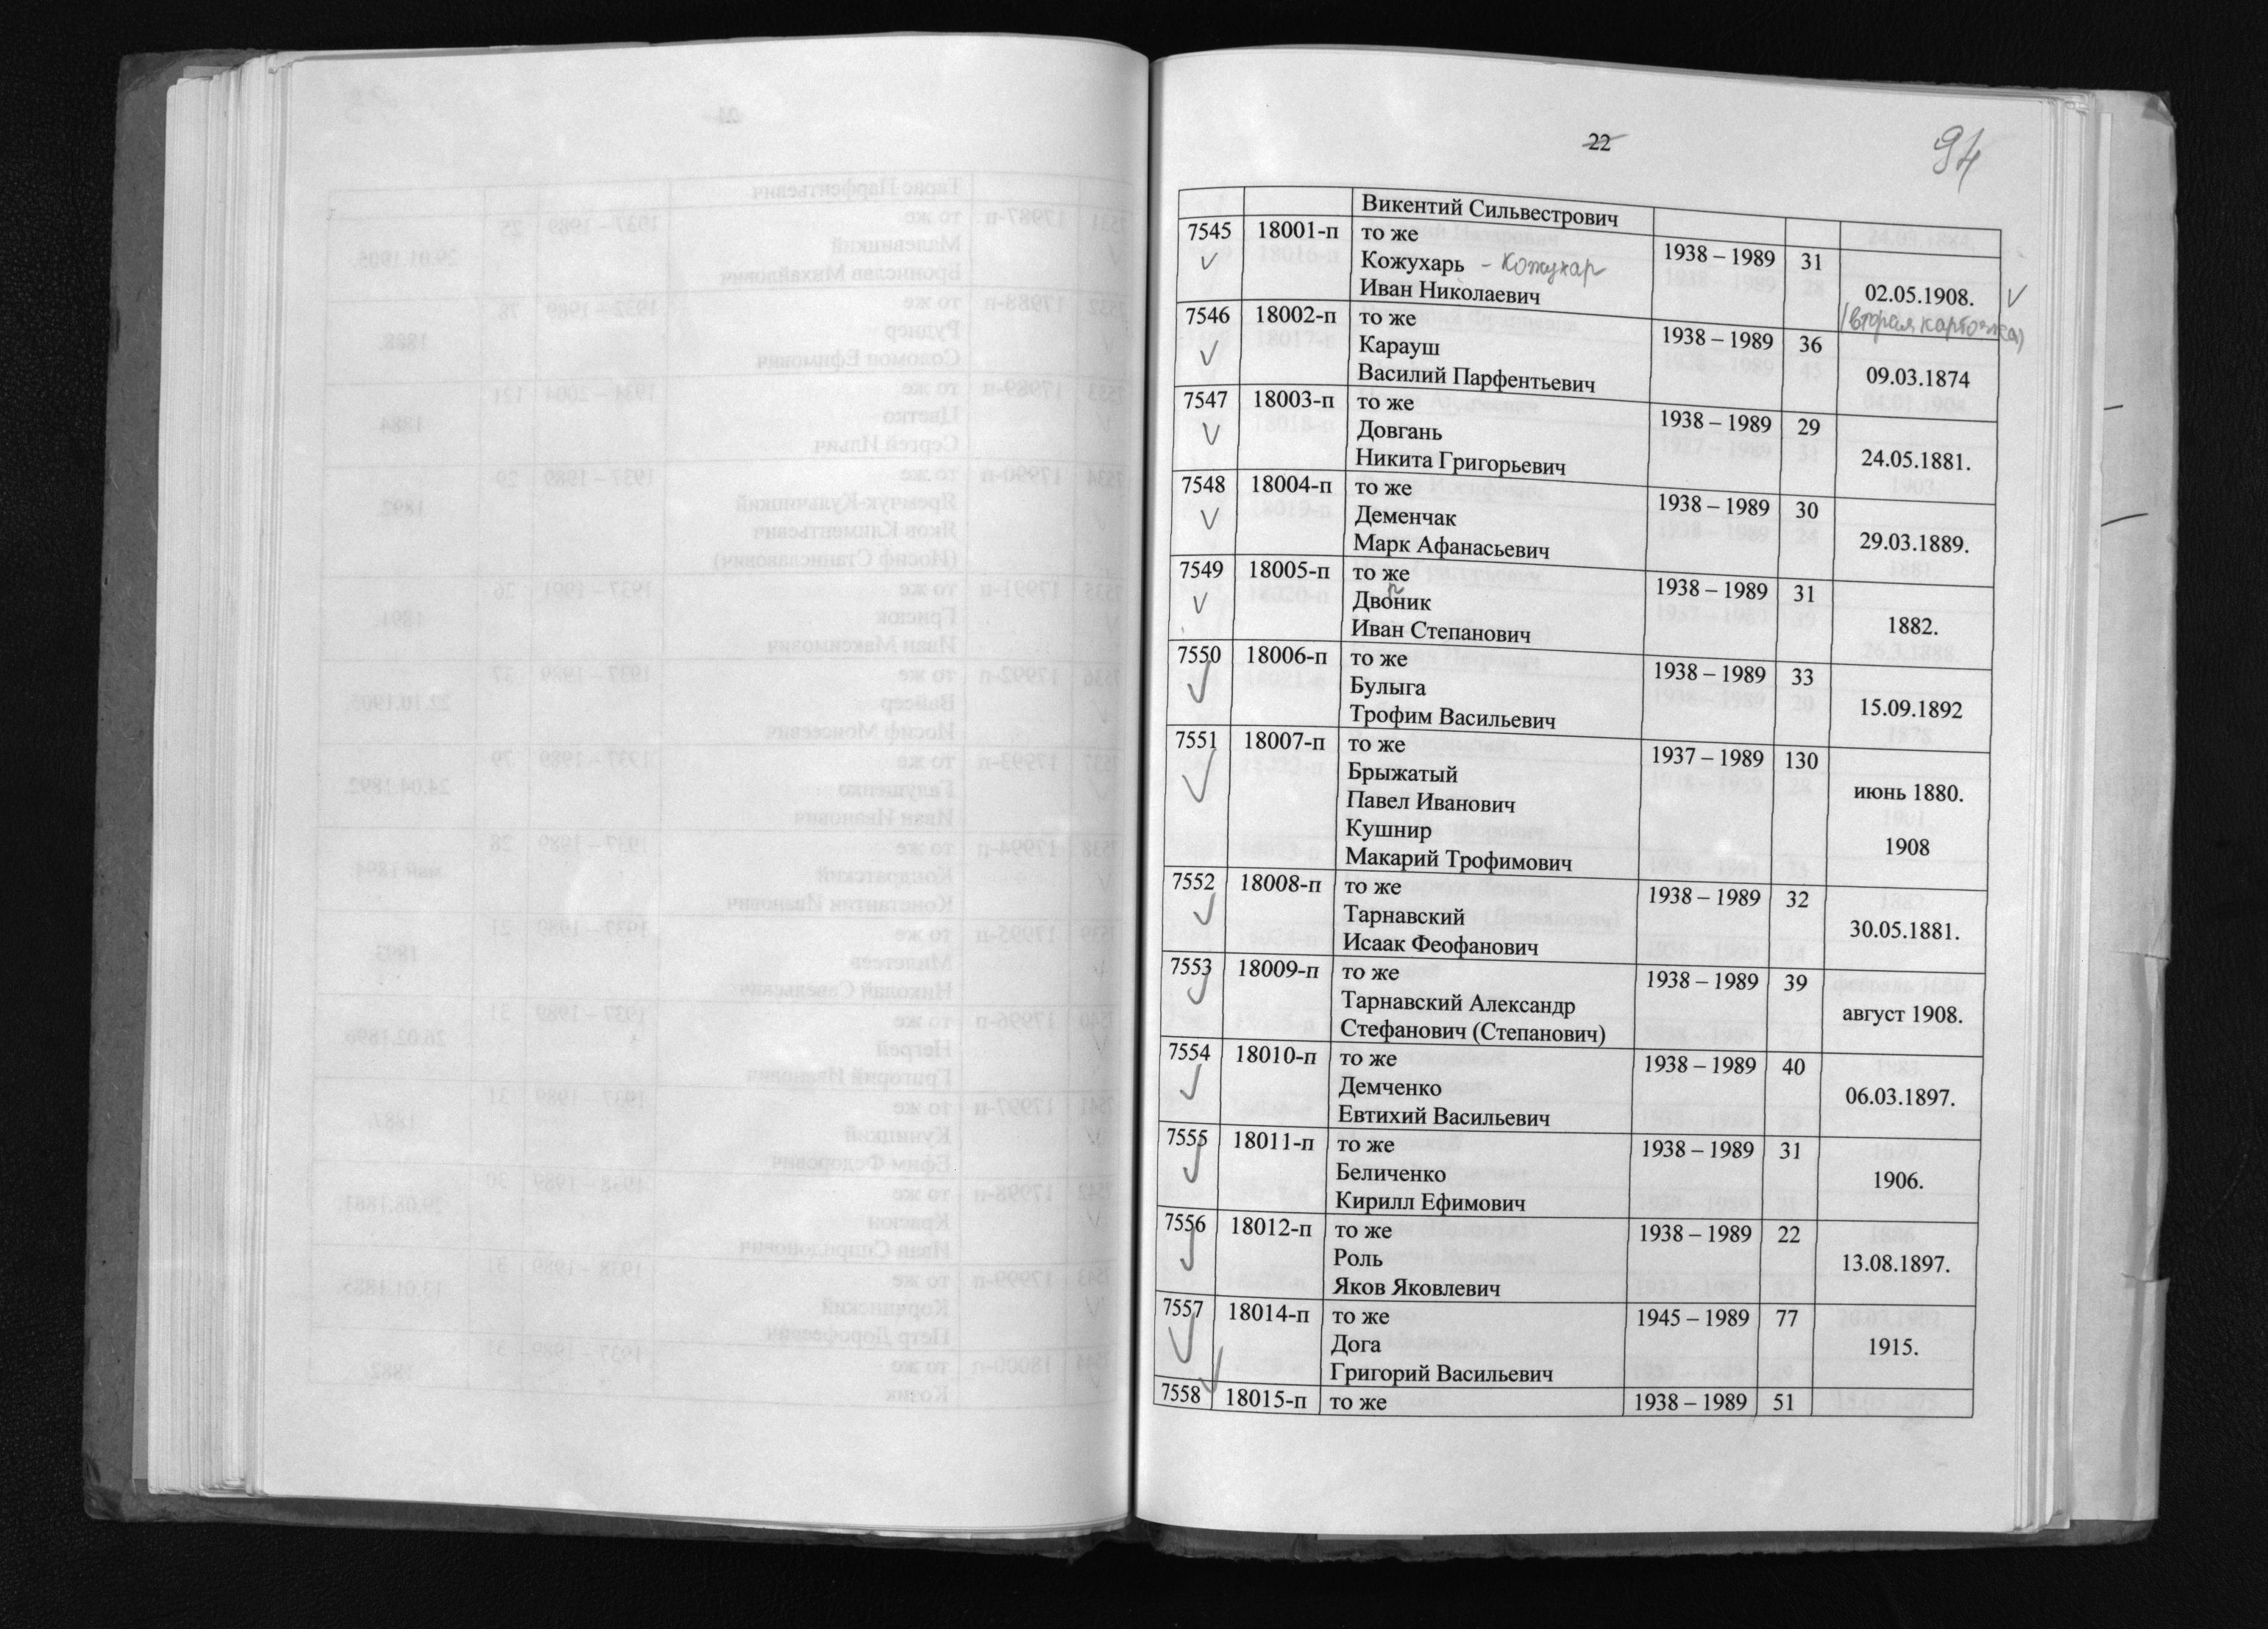 22
94
Викентий Сильвестрович
7545 18001-п то же 1938 – 1989 31
Кожухарь - Кожухар
Иван Николаевич 02.05.1908.
(вторая карточка)
7546 18002-п то же 1938 – 1989 36
Карауш
Василий Парфентьевич 09.03.1874
7547 18003-п то же 1938 – 1989 29
Довгань
Никита Григорьевич 24.05.1881.
7548 18004-п то же 1938 – 1989 30
Деменчак
Марк Афанасьевич 29.03.1889.
7549 18005-п то же 1938 – 1989 31
Двоник
Иван Степанович 1882.
7550 18006-п то же 1938 – 1989 33
Булыга
Трофим Васильевич 15.09.1892
7551 18007-п то же 1937 – 1989 130
Брыжатый
Павел Иванович июнь 1880.
Кушнир
Макарий Трофимович 1908
7552 18008-п то же 1938 – 1989 32
Тарнавский
Исаак Феофанович 30.05.1881.
7553 18009-п то же 1938 – 1989 39
Тарнавский Александр
Стефанович (Степанович) август 1908.
7554 18010-п то же 1938 – 1989 40
Демченко
Евтихий Васильевич 06.03.1897.
7555 18011-п то же 1938 – 1989 31
Беличенко
Кирилл Ефимович 1906.
7556 18012-п то же 1938 – 1989 22
Роль
Яков Яковлевич 13.08.1897.
7557 18014-п то же 1945 – 1989 77
Дога
Григорий Васильевич 1915.
7558 18015-п то же 1938 – 1989 51